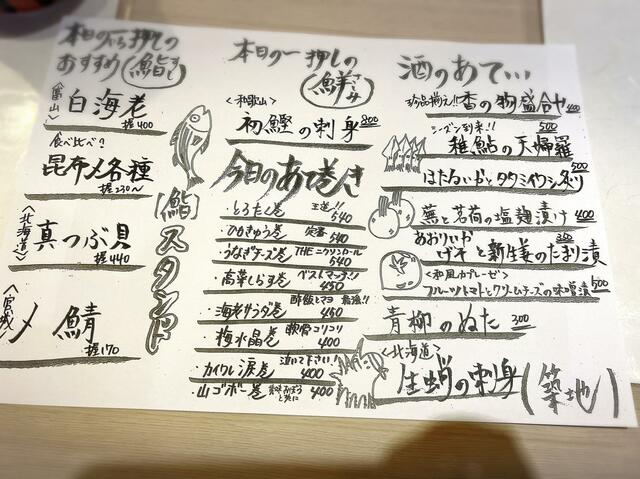 本日の一押しの
おすすめ(鮨すし)
<富山>
白海老
握400
食べ比べ!
昆布〆各種
握230〜
<北海道>
真つぶ貝
握440
<宮城>
〆鯖
握170
[鮨]スタンド
本日の一押しの
(鮮さしみ)
<和歌山>
初鰹の刺身 800
今日のあて巻き
・とろたく巻 王道!! 540
・ひもきゅう巻 定番 540
・うなぎチーズ巻 THEニクリンロール 540
・高菜しらす巻 ベストマッチ!! 450
・海老サラダ巻 醉飯とマヨ 最強!! 450
・梅水晶巻 軟骨コリコリ 400
・カイワレ涙巻 泣いて下さい! 400
・山ゴボー巻 400
酒のあて…
珍品揃え!!香の物盛合せ 400
シーズン到来!! 500
稚鮎の天婦羅
500
ほたるいかとタタミイワシ炙り
蕪と茗荷の塩麹漬け 400
あおりいか
げそと新生姜のたまり漬
<和風カプレーゼ>
フルーツトマトとクリームチーズの味噌漬 500
青柳のぬた 300
<北海道>
生蛸の刺身
(築地)